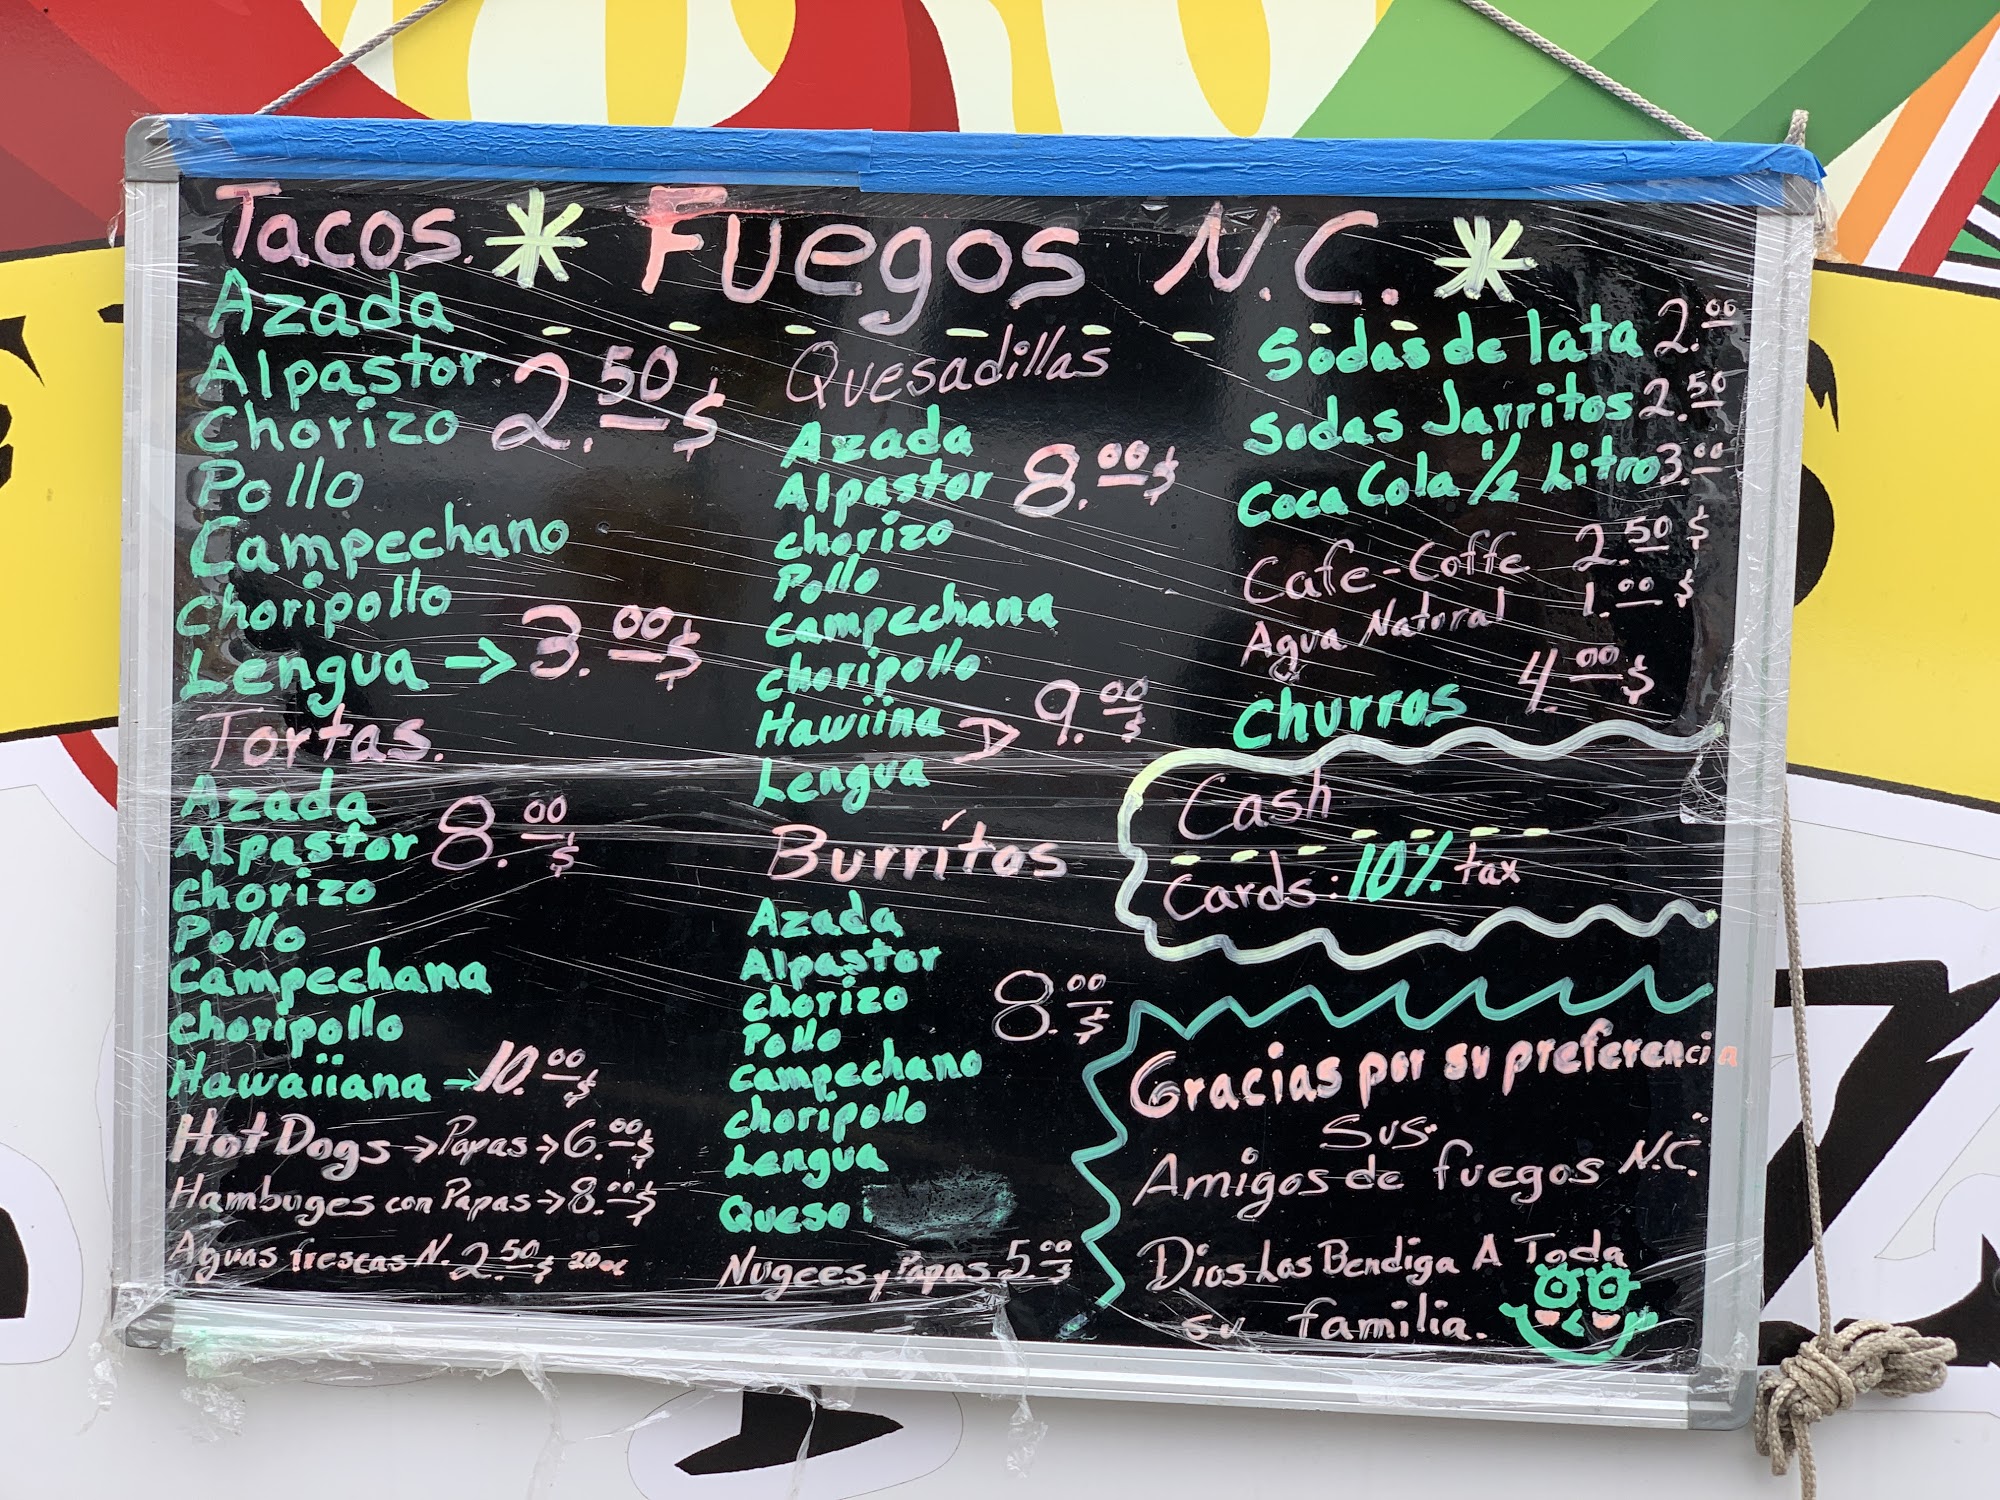 Tacos. * Fuegos N.C. *
Azada
Alpastor
Chorizo
2.50$
Pollo
Campechano
Choripollo
Lengua → 3.00$
Tortas.
Azada
Alpastor
8.00$
Chorizo
Pollo
Campechana
Choripollo
Hawaiiana → 10.00$
Hot Dogs → Papas → 6.00$
Hambuges con Papas → 8.00$
Aguas frescas N. 2.50$ 20oz
Quesadillas
Azada
Alpastor
8.00$
chorizo
Pollo
Campechana
choripollo
Hawiina
9.00$
Lengua
Burrítos
Azada
Alpastor
chorizo
8.00$
Pollo
campechano
choripollo
Lengua
Queso
Nugees y Papas 5.00$
Sodas de lata 2.00
Sodas Jarritos 2.50
Coca Cola 1/2 Litro 3.00
Cafe-Coffe 2.50$
Agua Natural 1.00$
Churros 4.00$
Cash
Cards: 10% tax
Gracias por su preferencia
Sus
Amigos de fuegos N.C.
Dios Los Bendiga A Toda
su familia.